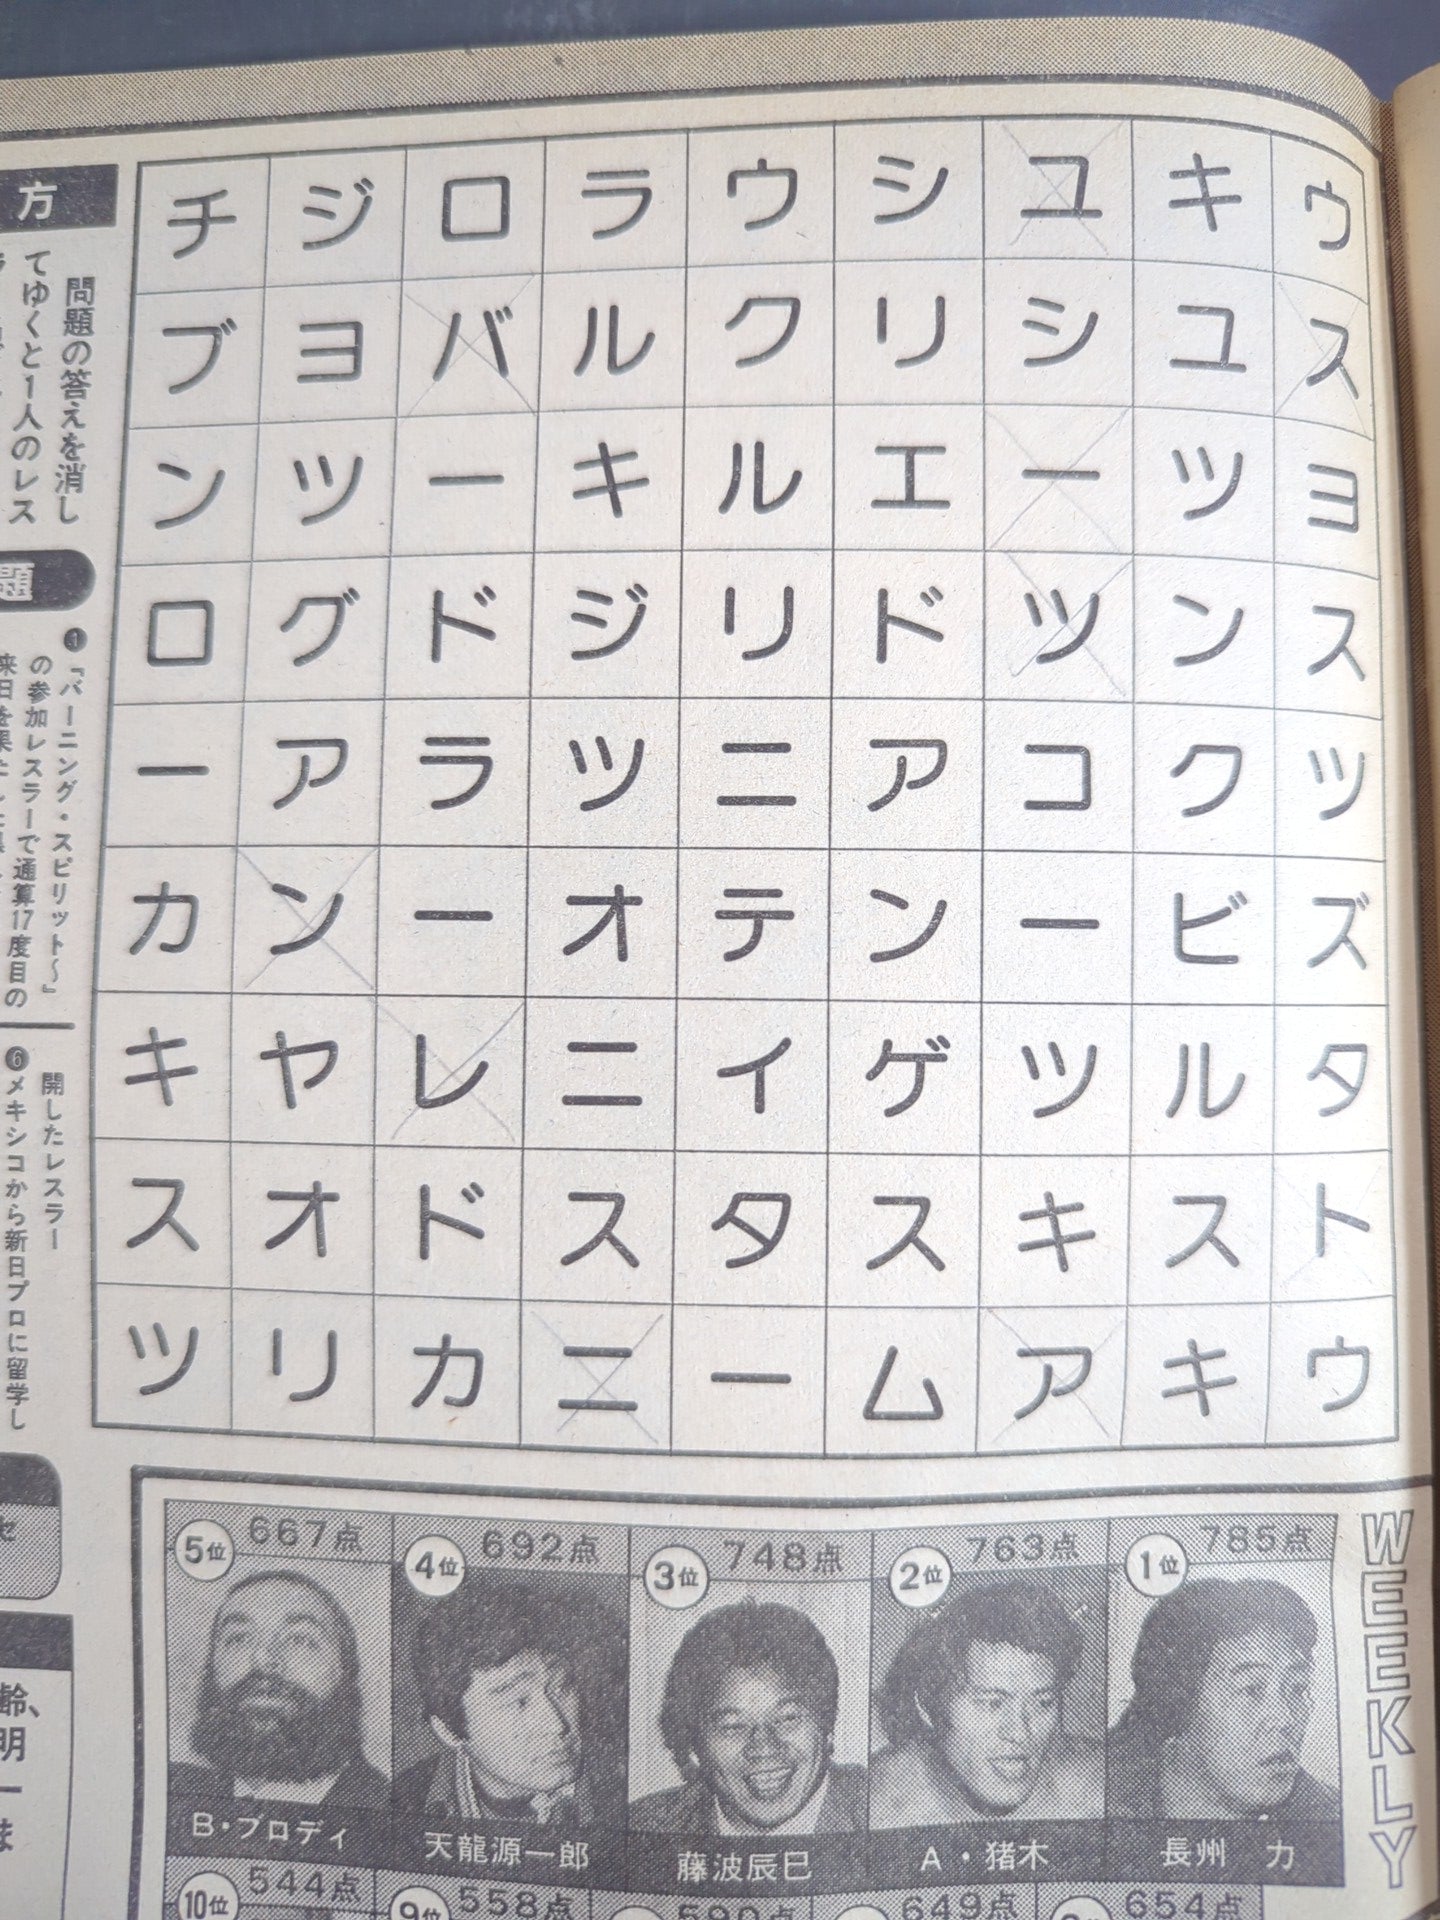 チジロラウシユキウ
ブヨバルクリシユス
ンツーキルエーツヨ
ログドジリドツンス
ーアラツニアコクツ
カンーオテンービズ
キヤレニイゲツルタ
スオドスタスキスト
ツリカニームアキウ
方
問題の答えを消し
てゆくと1人のレス
題
❶『バーニング・スピリット〜』
の参加レスラーで通算17度目の
開したレスラー
❻メキシコから新日プロに留学し
セ
齢、
明
ー
ま
WEEKLY
1位 785点
長州 力
2位 763点
A・猪木
3位 748点
藤波辰巳
4位 692点
天龍源一郎
5位 667点
B・ブロディ
654点
649点
590点
9位 558点
10位 544点